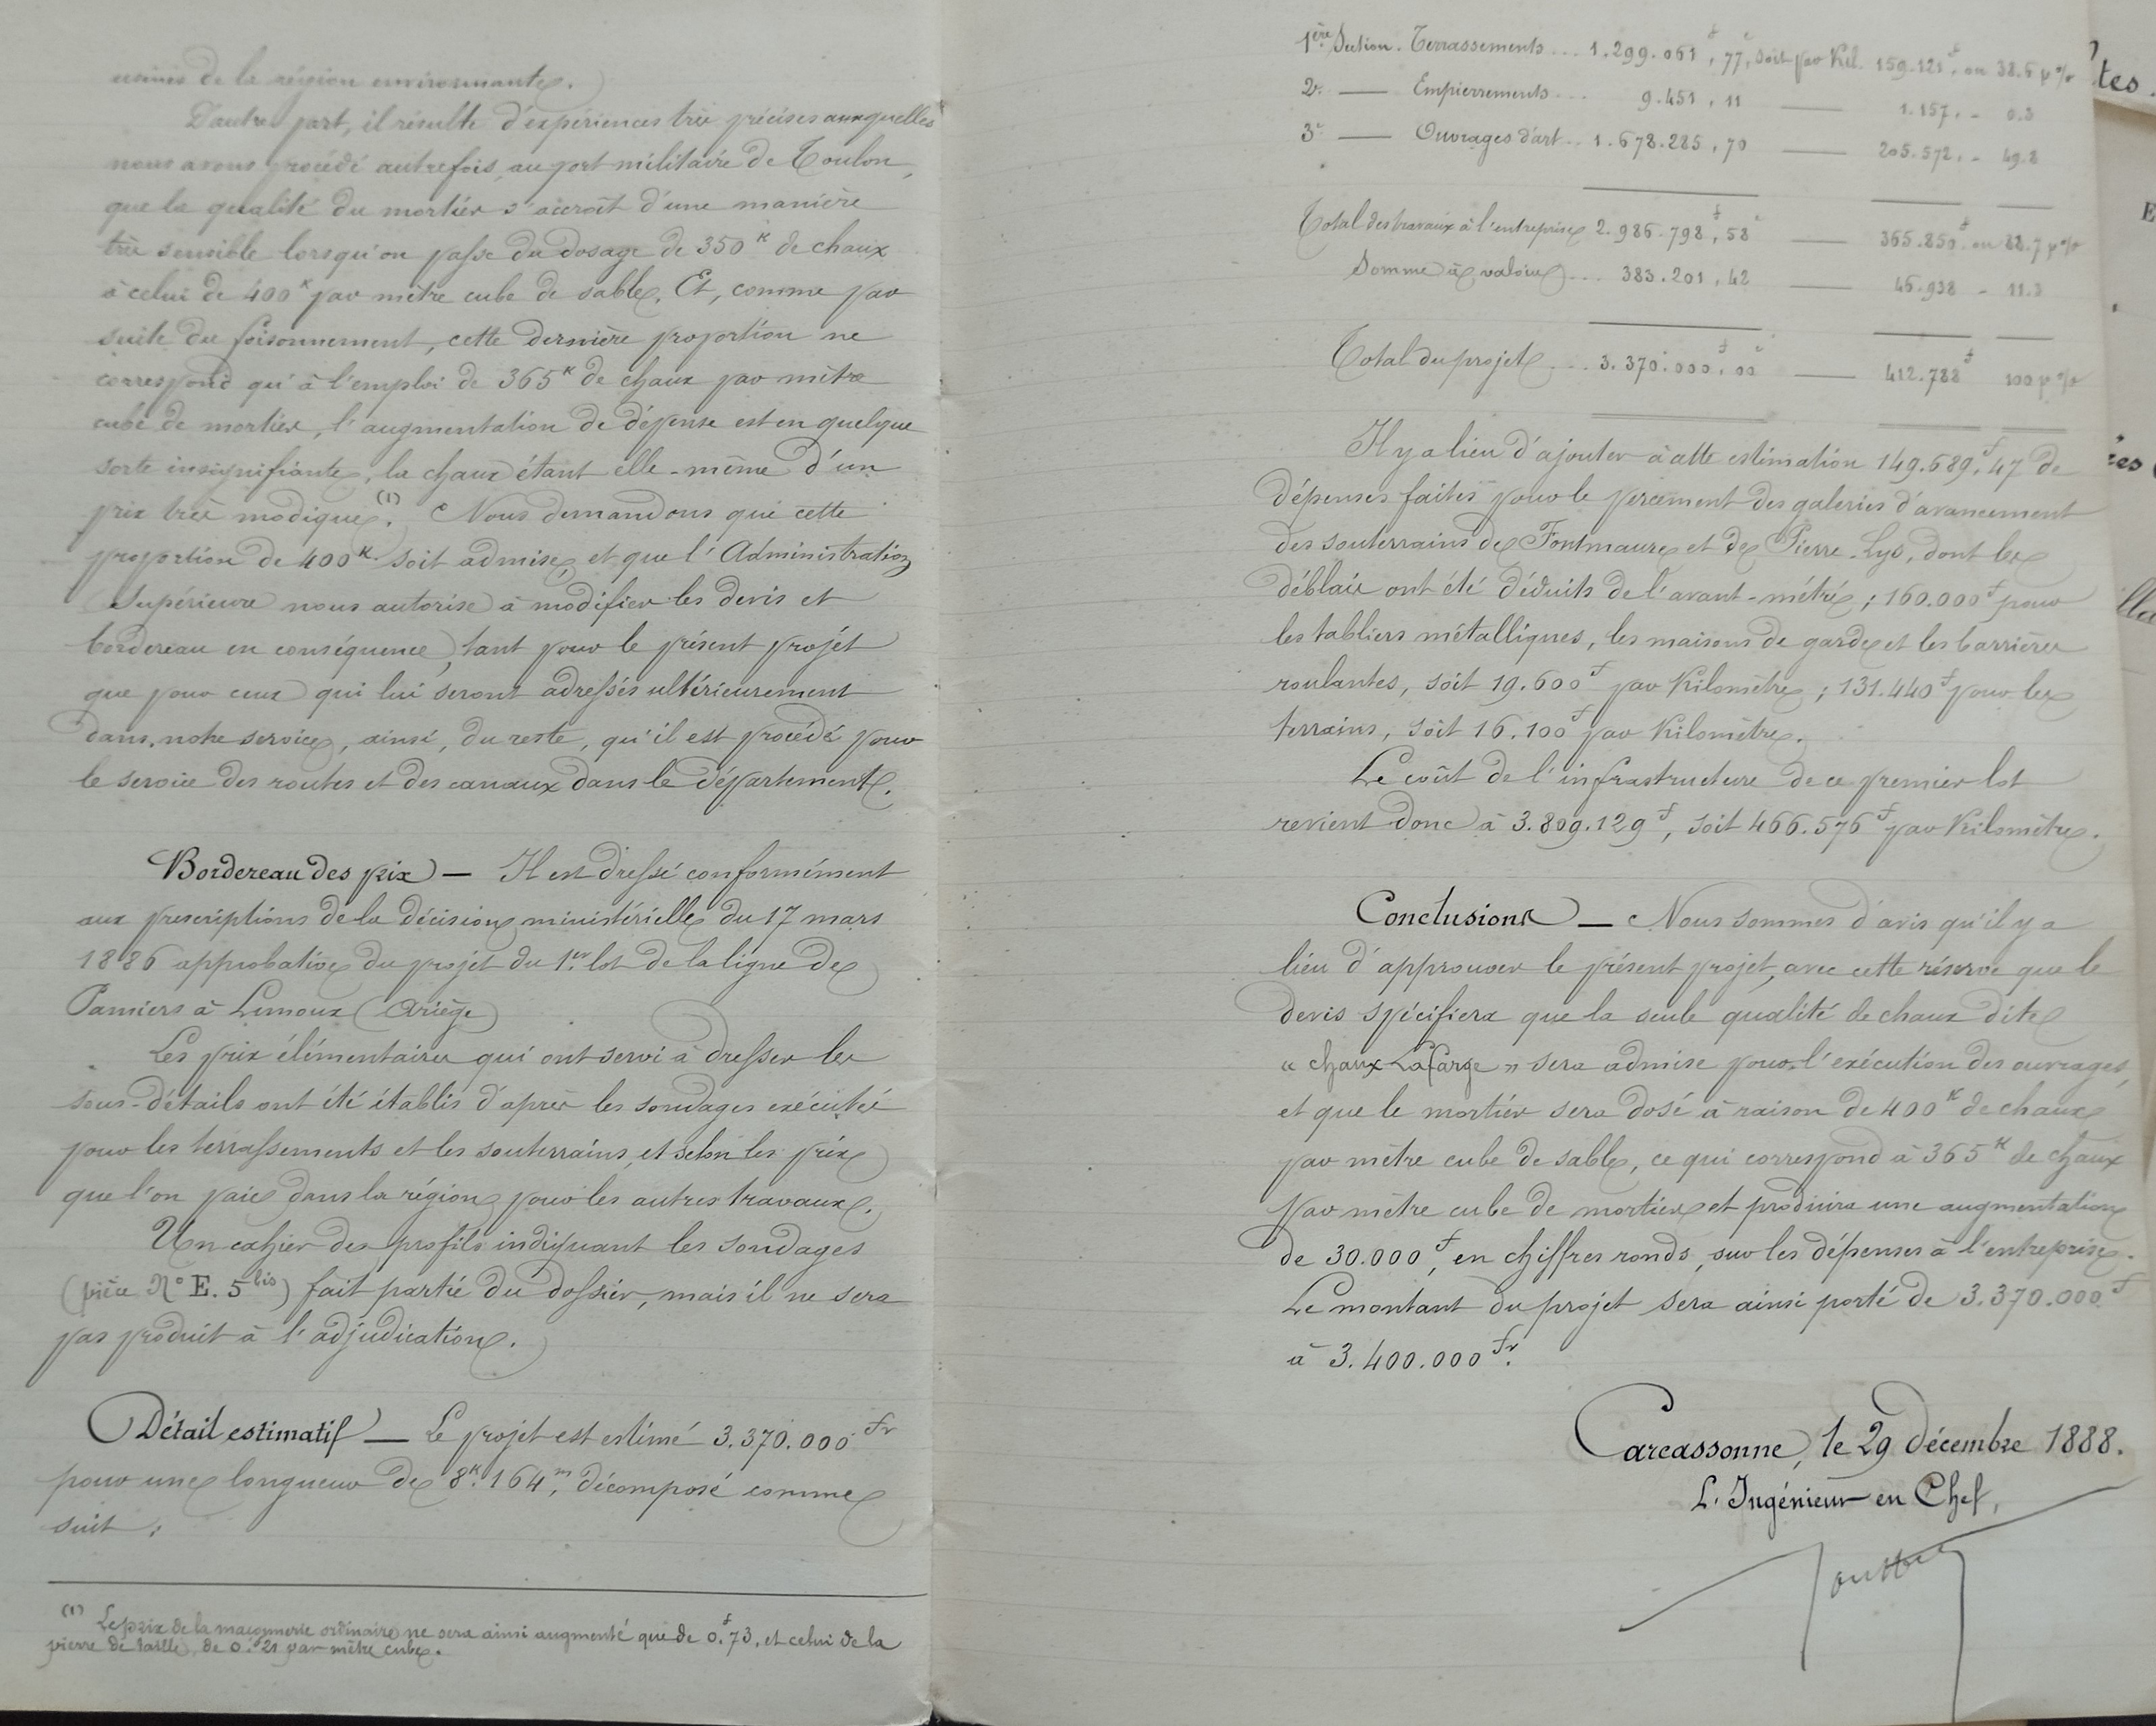 usines de la région environnante.
D'autre part, il résulte d'expériences très précises auxquelles
nous avons procédé autrefois, au port militaire de Toulon,
que la qualité du mortier s'accroît d'une manière
très sensible lorsqu'on passe du dosage de 350ᴷ de chaux
à celui de 400ᴷ par mètre cube de sable. Et, comme par
suite du foisonnement, cette dernière proportion ne
correspond qu'à l'emploi de 365ᴷ de chaux par mètre
cube de mortier, l'augmentation de dépense est en quelque
sorte insignifiante, la chaux étant elle-même d'un
prix très modique.⁽¹⁾ Nous demandons que cette
proportion de 400ᴷ soit admise, et que l'Administration
Supérieure nous autorise à modifier les devis et
bordereau en conséquence, tant pour le présent projet
que pour ceux qui lui seront adressés ultérieurement
dans notre service, ainsi, du reste, qu'il est procédé pour
le service des routes et des canaux dans le département.
Bordereau des prix — Il est dressé conformément
aux prescriptions de la décision ministérielle du 17 mars
1886 approbative du projet du 1er lot de la ligne de
Pamiers à Limoux (Ariège)
Les prix élémentaires qui ont servi à dresser les
sous-détails ont été établis d'après les sondages exécutés
pour les terrassements et les souterrains, et selon les prix
que l'on paie dans la région pour les autres travaux.
Un cahier des profils indiquant les sondages
(pièce N° E. 5 bis) fait partie du dossier, mais il ne sera
pas produit à l'adjudication.
Détail estimatif — Le projet est estimé 3.370.000 Fr
pour une longueur de 8ᴷ.164ᵐ, décomposé comme
suit :
(1) Le prix de la maçonnerie ordinaire ne sera ainsi augmenté que de 0f.73, et celui de la
pierre de taille, de 0f.21 par mètre cube.
1ère Section. Terrassements ... 1.299.061f,77c, soit par Kil. 159.121f, ou 38.6 p%
2e — Empierrements ... 9.451,11 — 1.157. - 0.3
3e — Ouvrages d'art ... 1.678.285,70 — 205.572. - 49.8
Total des travaux à l'entreprise 2.986.798f,58c — 365.850f ou 88.7 p%
Somme à valoir ... 383.201,42 — 46.938 - 11.3
Total du projet ... 3.370.000f,00c — 412.788f 100 p%
Il y a lieu d'ajouter à cette estimation 149.689f,47 de
dépenses faites pour le percement des galeries d'avancement
des souterrains de Fontmaure et de Pierre-Lys, dont les
déblais ont été déduits de l'avant-métré ; 160.000f pour
les tabliers métalliques, les maisons de garde et les barrières
roulantes, soit 19.600f par Kilomètre ; 131.440f pour les
terrains, soit 16.100f par Kilomètre.
Le coût de l'infrastructure de ce premier lot
revient donc à 3.809.129f, soit 466.576f par Kilomètre.
Conclusions — Nous sommes d'avis qu'il y a
lieu d'approuver le présent projet, avec cette réserve que le
devis spécifiera que la seule qualité de chaux dite
« chaux Lafarge » sera admise pour l'exécution des ouvrages,
et que le mortier sera dosé à raison de 400ᴷ de chaux
par mètre cube de sable, ce qui correspond à 365ᴷ de chaux
par mètre cube de mortier et produira une augmentation
de 30.000f, en chiffres ronds, sur les dépenses à l'entreprise.
Le montant du projet sera ainsi porté de 3.370.000f
à 3.400.000 Fr.
Carcassonne, le 29 décembre 1888.
L'Ingénieur en Chef,
tes.
E